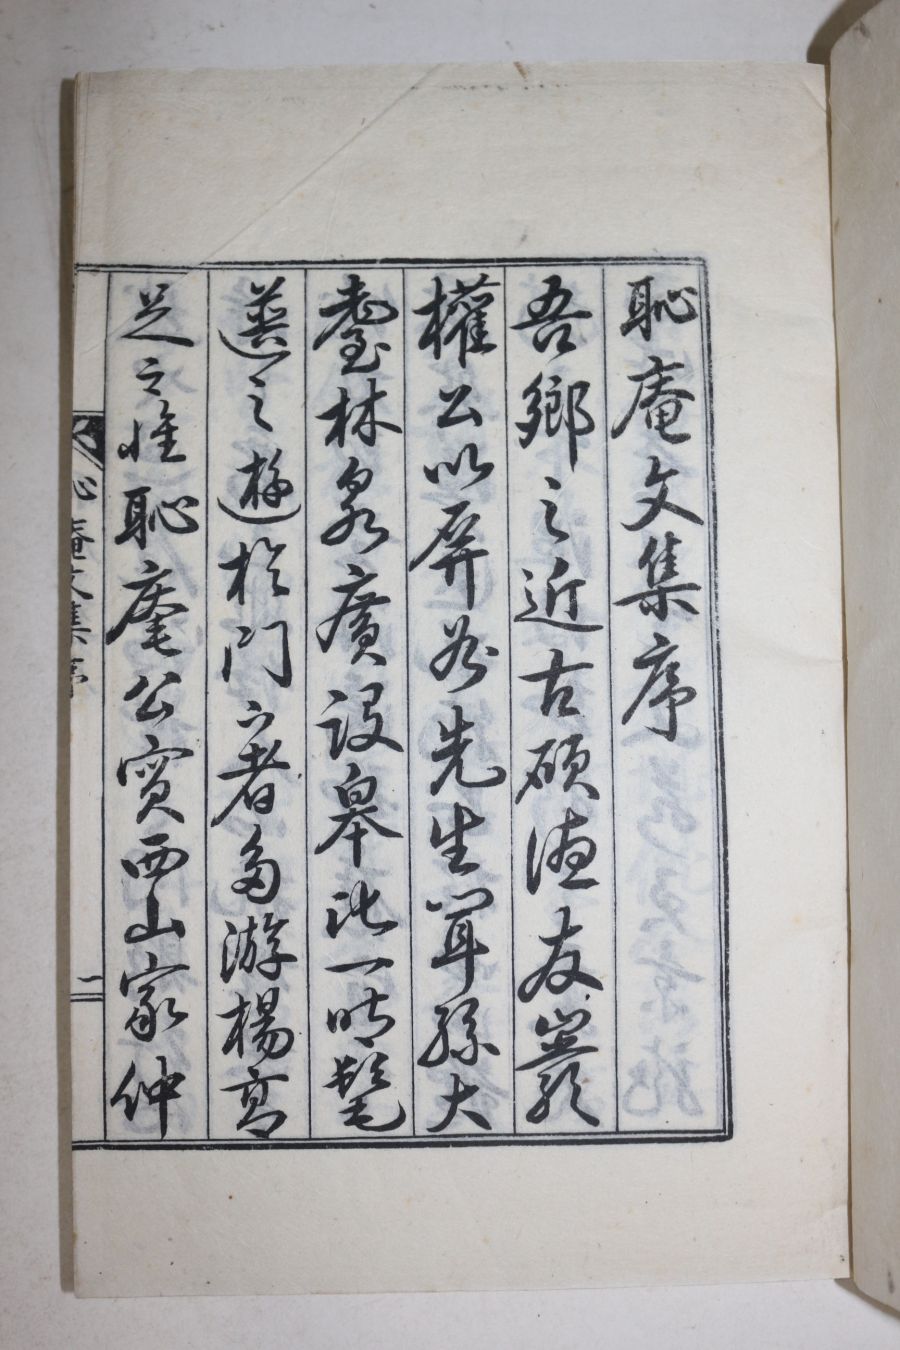 恥庵文集序
吾鄉之近古碩德友巖
權公以屏谷先生耳孫大
耋林泉廣設皋比一時髦
選之遊於門下者多游楊高
足之惟恥庵公實西山家仲
恥庵文集序 一